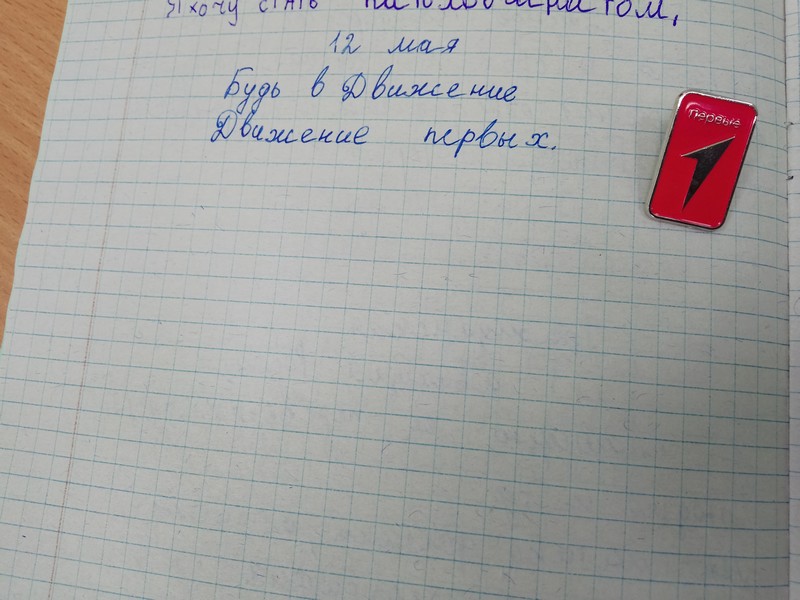 Я хочу стать
12 мая
Будь в Движение
Движение первых.
первые